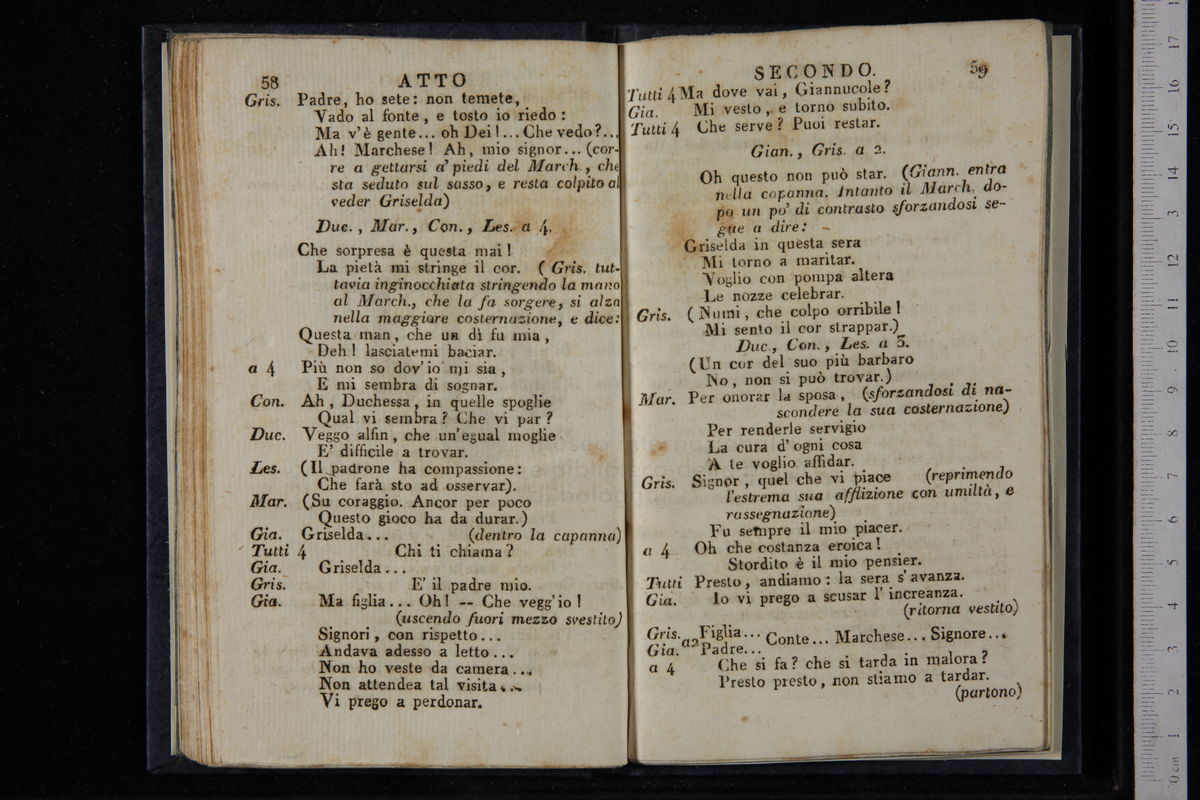 58
ATTO
Gris. Padre, ho sete: non temete,
Vado al fonte, e tosto io riedo:
Ma v'è gente... oh Dei!... Che vedo?...
Ah! Marchese! Ah, mio signor... (cor-
re a gettarsi a' piedi del March., che
sta seduto sul sasso, e resta colpito al
veder Griselda)
Duc., Mar., Con., Les. a 4.
Che sorpresa è questa mai!
La pietà mi stringe il cor. (Gris. tut-
tavia inginocchiata stringendo la mano
al March., che la fa sorgere, si alza
nella maggiore costernazione, e dice:
Questa man, che un dì fu mia,
Deh! lasciatemi baciar.
a 4 Più non so dov'io mi sia,
E mi sembra di sognar.
Con. Ah, Duchessa, in quelle spoglie
Qual vi sembra? Che vi par?
Duc. Veggo alfin, che un'egual moglie
E' difficile a trovar.
Les. (Il padrone ha compassione:
Che farà sto ad osservar).
Mar. (Su coraggio. Ancor per poco
Questo gioco ha da durar.)
Gia. Griselda... (dentro la capanna)
Tutti 4 Chi ti chiama?
Gia. Griselda...
Gris. E' il padre mio.
Gia. Ma figlia... Oh! -- Che vegg'io!
(uscendo fuori mezzo svestito)
Signori, con rispetto...
Andava adesso a letto...
Non ho veste da camera...
Non attendea tal visita...
Vi prego a perdonar.
SECONDO.
59
Tutti 4 Ma dove vai, Giannucole?
Gia. Mi vesto, e torno subito.
Tutti 4 Che serve? Puoi restar.
Gian., Gris. a 2.
Oh questo non può star. (Giann. entra
nella capanna. Intanto il March. do-
po un po' di contrasto sforzandosi se-
gue a dire:
Griselda in questa sera
Mi torno a maritar.
Voglio con pompa altera
Le nozze celebrar.
Gris. (Numi, che colpo orribile!
Mi sento il cor strappar.)
Duc., Con., Les. a 3.
(Un cor del suo più barbaro
No, non si può trovar.)
Mar. Per onorar la sposa, (sforzandosi di na-
scondere la sua costernazione)
Per renderle servigio
La cura d'ogni cosa
A te voglio affidar.
Gris. Signor, quel che vi piace (reprimendo
l'estrema sua afflizione con umiltà, e
rassegnazione)
Fu sempre il mio piacer.
a 4 Oh che costanza eroica!
Stordito è il mio pensier.
Tutti Presto, andiamo: la sera s'avanza.
Gia. Io vi prego a scusar l'increanza.
(ritorna vestito)
Gris. Figlia...
a2 Conte... Marchese... Signore...
Gia. Padre...
a 4 Che si fa? che si tarda in malora?
Presto presto, non stiamo a tardar.
(partono)
0 cm 1 2 3 4 5 6 7 8 9 10 11 12 13 14 15 16 17